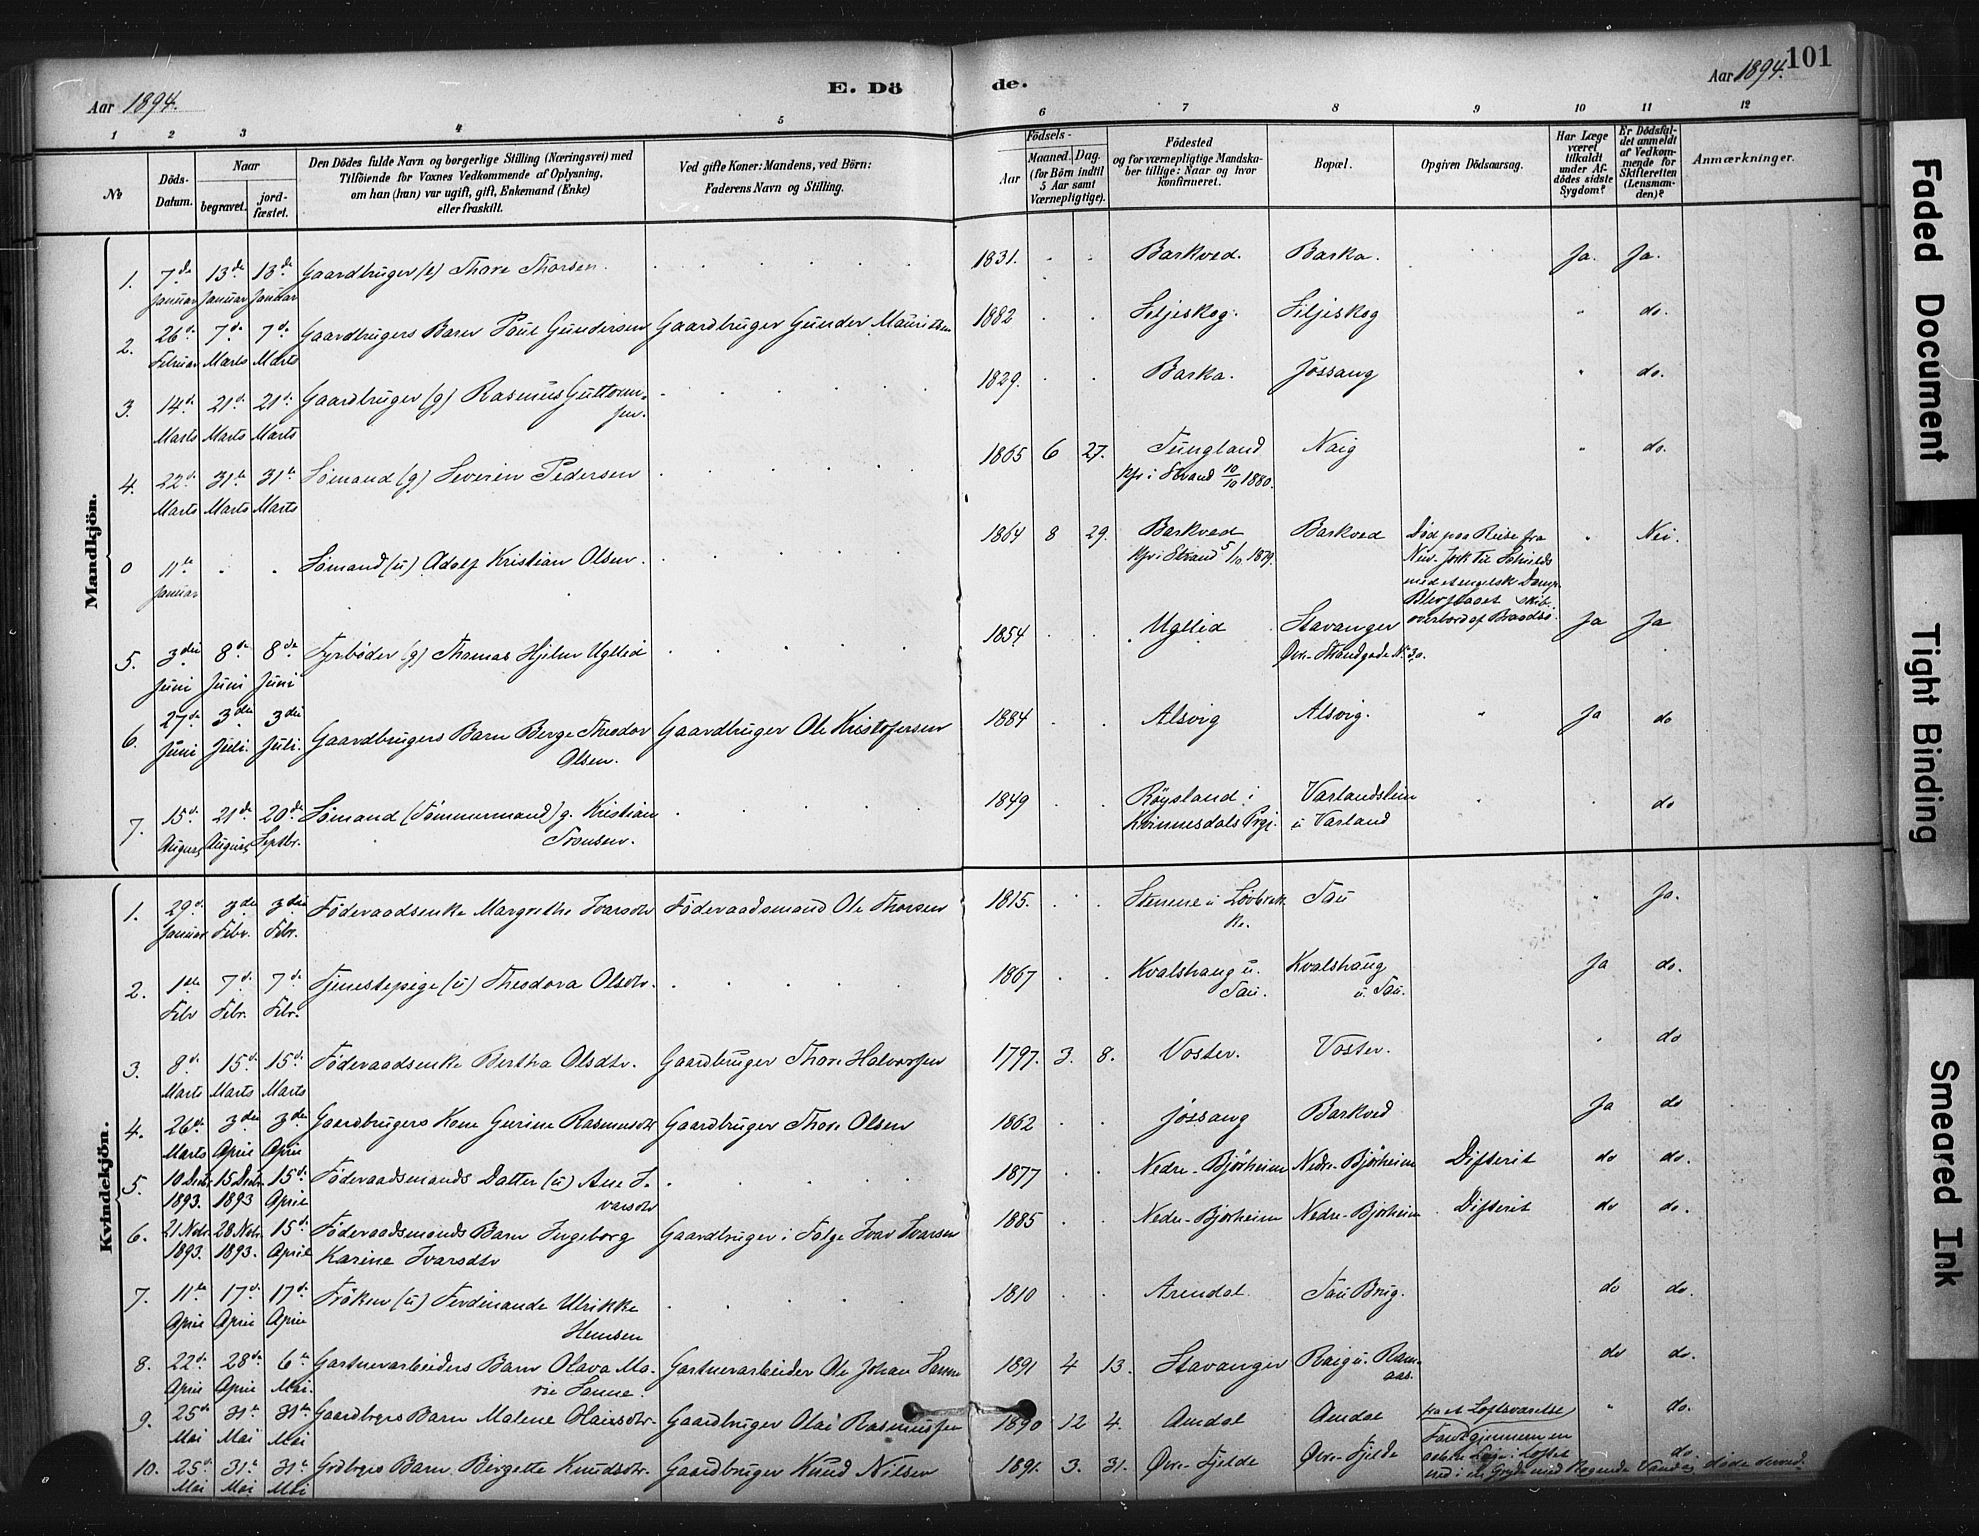 101
Aar 1894.
E. Dö de.
Aar 1894.
1 2 3 4 5 6 7 8 9 10 11 12
№
Döds-
Datum.
Naar
begravet.
jord-
fæstet.
Den Dödes fulde Navn og borgerlige Stilling (Næringsvei) med
Tilföiende for Voxnes Vedkommende af Oplysning,
om han (hun) var ugift, gift, Enkemand (Enke)
eller fraskilt.
Ved gifte Koner: Mandens, ved Börn:
Faderens Navn og Stilling.
Födsels-
Aar
Maaned. Dag.
(for Börn indtil
5 Aar samt
Værnepligtige).
Födested
og for værnepligtige Mandska-
ber tillige: Naar og hvor
konfirmeret.
Bopæl.
Opgiven Dödsaarsag.
Har Læge
været
tilkaldt
under Af-
dödes sidste
Sygdom?
Er Dödsfal-
det anmeldt
af Vedkom-
mende for
Skifteretten
(Lensman-
den)?
Anmærkninger.
Mandkjön.
1. 7de Januar 13de Januar 13de Januar Gaardbruger (e) Thore Thorsen. 1831. Barkved. Barka. Ja. Ja.
2. 26de Februar 7de Marts 7de Marts Gaardbrugers Barn Poul Gundersen Gaardbruger Gunder Mauritsen 1882 Liljeskog. Liljeskog " do.
3. 14de Marts 21de Marts 21de Marts Gaardbruger (g) Rasmus Guttorm-
sen. 1829. Barka. Jössang " do.
4. 22de Marts 31te Marts 31te Marts Sömand (g) Severin Pedersen 1865 6 27. Tungland Naig " do.
Kfr. i Strand 10/10 1880.
0 11te Januar Sömand (u) Adolf Kristian Olsen. 1864 8 29. Barkved Barkved Död paa Reise fra " Nei.
Kfr. i Strand 5/10. 1879. New-York til Schields
med et engelsk Damp-
skib. Blev slaaet
overbord af Braadsö.
5. 3die Juni 8de Juni 8de Juni Fyrböder (g) Thomas Hjelm Uglied 1854 Uglied Stavanger Ja Ja
Övr. Strandgade No 30.
6. 27de Juni 3die Juli. 3die Juli. Gaardbrugers Barn Berge Theodor Gaardbruger Ole Kristofersen 1884 Alsvig Alsvig. " Ja do
Olsen.
7. 15de August 21de August 20de Septbr. Sömand (Tömmermand) g. Kristian 1849 Röysland i Varlandslein do
Tronsen. Kvinnesdals Prgj. u Varland
Kvindekjön.
1. 29de Januar 3die Febr. 3die Febr. Föderaadsenke Margrethe Ivarsdtr Föderaadsmand Ole Thorsen 1815. Stemme u Lövbrek- Tau " Ja.
ke.
2. 1ste Febr 7de Febr. 7de Febr. Tjenestepige (u) Theodora Olsdtr. 1867 Kvalshaug u. Kvalshaug Ja do.
Tau. u. Tau.
3. 8de Marts 15de Marts 15de Marts Föderaadsenke Bertha Olsdtr. Gaardbruger Thore Halvorsen 1797. 3. 8. Voster. Voster. do
4. 26de Marts 3die April 3die April Gaardbrugers Kone Gurine Rasmusdtr Gaardbruger Thore Olsen 1862 Jössang Barkved Ja do
5. 10 Decbr. 1893. 15 Decbr. 1893 15de April Föderaadsmands Datter (u) Ane I- 1877 Nedre-Björheim Nedre-Björheim Difterit do do.
varsdtr
6. 21 Novbr. 1893. 28 Novbr. 1893. 15de April Föderaadsmands Barn Ingeborg Gaardbruger i Tolge Ivar Ivarsen 1885 Nedre-Björheim Nedre-Björheim Difterit do do.
Karine Ivarsdtr
7. 11te April 17de April 17de April Fröken (u) Ferdinande Ulrikke 1810 Arendal. Tau Brug. do do.
Hemsen
8. 22de April 28de April 6te Mai. Gartnerarbeiders Barn Olava Ma- Gartnerarbeider Ole Johan Sanne 1891 4 13. Stavanger Raig u. Ram- do do.
rie Sanne. aas.
9. 25de Mai 31te Mai 31te Mai Gaardbrgrs Barn Malene Olaisdtr. Gaardbruger Olai Rasmussen 1890 12 4. Amdal Amdal fra et Loftsvarelse " do.
10. 25de Mai 31te Mai 31te Mai Grdbrgrs Barn Birgette Knudsdtr. Gaardbruger Knud Nilsen 1891. 3. 31. Övr. Fjelde Övr. Fjelde Faldt gjennem en do
aaben Luge i Loftet
ned i en Gryde med kogende Vand og döde derved.
Faded Document
Tight Binding
Smeared Ink